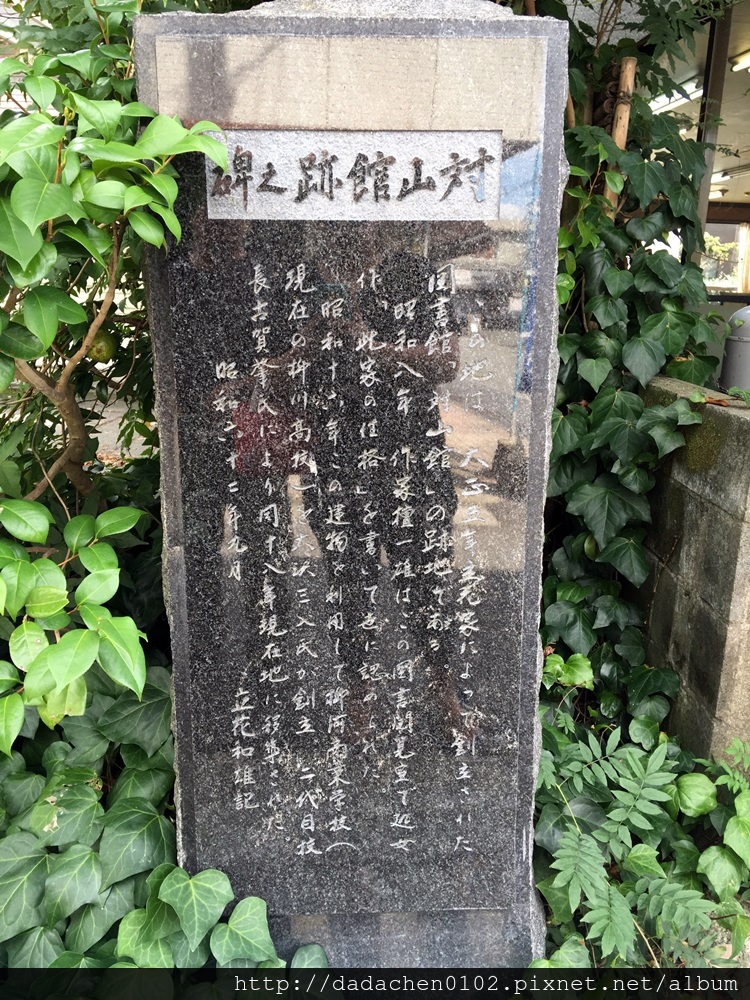 対山館跡之碑
この地は、大正五年立花家によって創立された
図書館「対山館」の跡地である。
昭和八年 作家檀一雄はこの図書閲覧室で処女
作「此家の性格」を書いて世に認められた。
昭和十六年この建物を利用して柳河商業学校(
現在の柳川高校)を大沢三入氏が創立し二代目校
長古賀肇氏により同十八年現在地に移築された。
昭和六十二年九月
立花和雄記
http://dadachen0102.pixnet.net/album